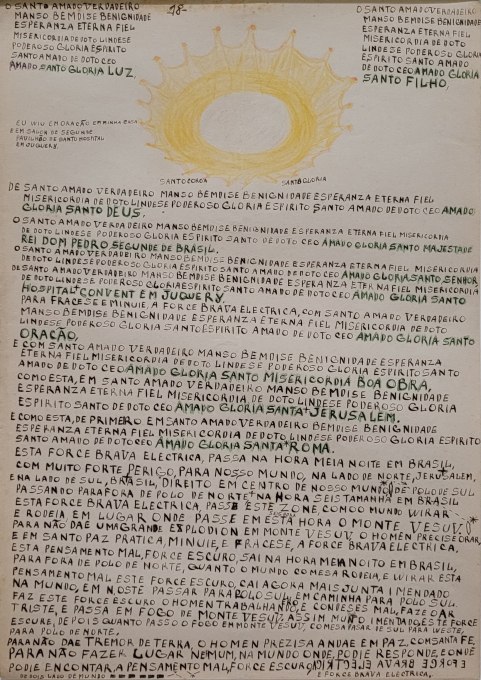 O SANTO AMADO VERDADEIRO
MANSO BEMDISE BENIGNIDADE
ESPERANZA ETERNA FIEL
MISERICORDIA DE DOTO LINDESE
PODEROSO GLORIA ESPIRITO
SANTO AMADO DE DOTO CEO
AMADO SANTO GLORIA LUZ.
18-
O SANTO AMADO VERDADEIRO
MANSO BEMDISE BENIGNIDADE
ESPERANZA ETERNA FIEL
MISERICORDIA DE DOTO
LINDESE PODEROSO GLORIA
ESPIRITO SANTO AMADO
DE DOTO CEO AMADO GLORIA
SANTO FILHO.
EU WIU EM ORAÇÃO EM MINHA CASA,
E EM SALON DE SEGUNDE
PAVILHÃO DE SANTO HOSPITAL
EM JUQUERY.
SANTO COROA SANTO GLORIA
DE SANTO AMADO VERDADEIRO MANSO BEMDISE BENIGNIDADE ESPERANZA ETERNA FIEL
MISERICORDIA DE DOTO LINDESE PODEROSO GLORIA ESPIRITO SANTO AMADO DE DOTO CEO AMADO
GLORIA SANTO DEUS.
O SANTO AMADO VERDADEIRO MANSO BEMDISE BENIGNIDADE ESPERANZA ETERNA FIEL MISERICORDIA
DE DOTO LINDESE PODEROSO GLORIA ESPIRITO SANTO DE DOTO CEO AMADO GLORIA SANTO MAJESTADE
REI DOM PEDRO SEGUNDE DE BRASIL.
O SANTO AMADO VERDADEIRO MANSO BEMDISE BENIGNIDADE ESPERANZA ETERNA FIEL MISERICORDIA
DE DOTO LINDESE PODEROSO GLORIA ESPIRITO SANTO AMADO DE DOTO CEO AMADO GLORIA SANTO SENHOR
DE SANTO AMADO VERDADEIRO MANSO BEMDISE BENIGNIDADE ESPERANZA ETERNA FIEL MISERICORDIA
DE DOTO LINDESE PODEROSO GLORIA ESPIRITO SANTO AMADO DE DOTO CEO AMADO GLORIA SANTO
HOSPITAL CONVENT EM JUQUERY.
PARA FRACESE E MINUIE, A FORCE BRAVA ELECTRICA, COM SANTO AMADO VERDADEIRO
MANSO BEMDISE BENIGNIDADE ESPERANZA ETERNA FIEL MISERICORDIA DE DOTO
LINDESE PODEROSO GLORIA SANTO ESPIRITO AMADO DE DOTO CEO AMADO GLORIA SANTO
ORAÇÃO,
E COM SANTO AMADO VERDADEIRO MANSO BEMDISE BENIGNIDADE ESPERANZA
ETERNA FIEL MISERICORDIA DE DOTO LINDESE PODEROSO GLORIA ESPIRITO SANTO
AMADO DE DOTO CEO AMADO GLORIA SANTO MISERICORDIA BOA OBRA,
COMO ESTA, EM SANTO AMADO VERDADEIRO MANSO BEMDISE BENIGNIDADE
ESPERANZA ETERNA FIEL MISERICORDIA, DE DOTO LINDESE PODEROSO GLORIA
ESPIRITO SANTO DE DOTO CEO AMADO GLORIA SANTA JERUSALEM.
E COMO ESTA, DE PRIMERO EM SANTO AMADO VERDADEIRO BEMDISE BENIGNIDADE
ESPERANZA ETERNA FIEL MISERICORDIA DE DOTO LINDESE PODEROSO GLORIA ESPIRITO
SANTO AMADO DE DOTO CEO AMADO GLORIA SANTA ROMA.
ESTA FORCE BRAVA ELECTRICA, PASSA NA HORA MEIA NOITE EM BRASIL,
COM MUITO FORTE PERIGO, PARA NOSSO MUNDO, NA LADO DE NORTE, JERUSALEM,
E NA LADO DE SUL, BRASIL, DIREITO EM CENTRO DE NOSSO MUNDO DE POLO DE SUL
PASSANDO PARA FORA DE POLO DE NORTE NA HORA SEIS TAMANHA EM BRASIL
ESTA FORCE BRAVA ELECTRICA PASSE ESTE ZONE, COMO O MUNDO WIRAR
E RODEIA EM LUGAR ONDE PASSE EM ESTA HORA O MONTE VESUV.
PARA NÃO DAE UMA GRANDE EXPLODION EM MONTE VESUV, O HOMEN PRECISE ORAR,
E EM SANTO PAZ PRATICA, MINUIE, E FRACESE, A FORCE BRAVA ELECTRICA,
ESTA PENSAMENTO MAL, FORCE ESCURO, SAI NA HORA MEIA NOITO EM BRASIL,
PARA FORA DE POLO DE NORTE, QUANTO O MUNDO COMESA RODEIA, E WIRAR ESTA
PENSAMENTO MAL ESTE FORCE ESCURO, CAI AGORA MAIS JUNTA I MENDADO
NA MUNDO, E M NOSTE PASSAR PARA POLO SUL, EM CAMINHA PARA POLO SUL
FAZ ESTE FORCE ESCURO O HOMEN TRABALHANDO, E CONDESES MAL, FAZE DAR
TRISTE, E PASSA EM FOGO DE MONTE VESUV, ASSIM MUNTO I MENDADO ESTE FORCE
ESCURE, DEPOIS QUANTO PASSO O FOGO EM MONTE VESUV, COMESA PASSAR DE SUL PARA WESTE,
PARA POLO DE NORTE.
PARA NÃO DAE TREMOR DE TERRA, O HOMEN PREZISA ANDAE EM PAZ, COM SANTA FE,
PARA NÃO FAZER LUGAR NEMUM, NA MUNDO ONDE, PODIE RESPONDE, E ONDE
PODIE ENCONTAR, A PENSAMENTO MAL, FORCE ESCURO,
DE DOIS LADO DE MUNDO E FORCE BRAVA ELECTRICA,